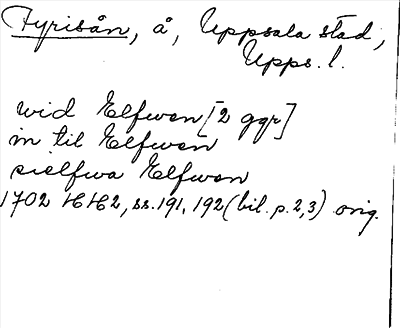 Fyrisån, å, Uppsala stad,
Upps. l.
wid Elfwen [2 ggr]
in til Elfwen
sielfwa Elfwen
1702 HH2, ss. 191, 192 (bil. p. 2, 3) orig.